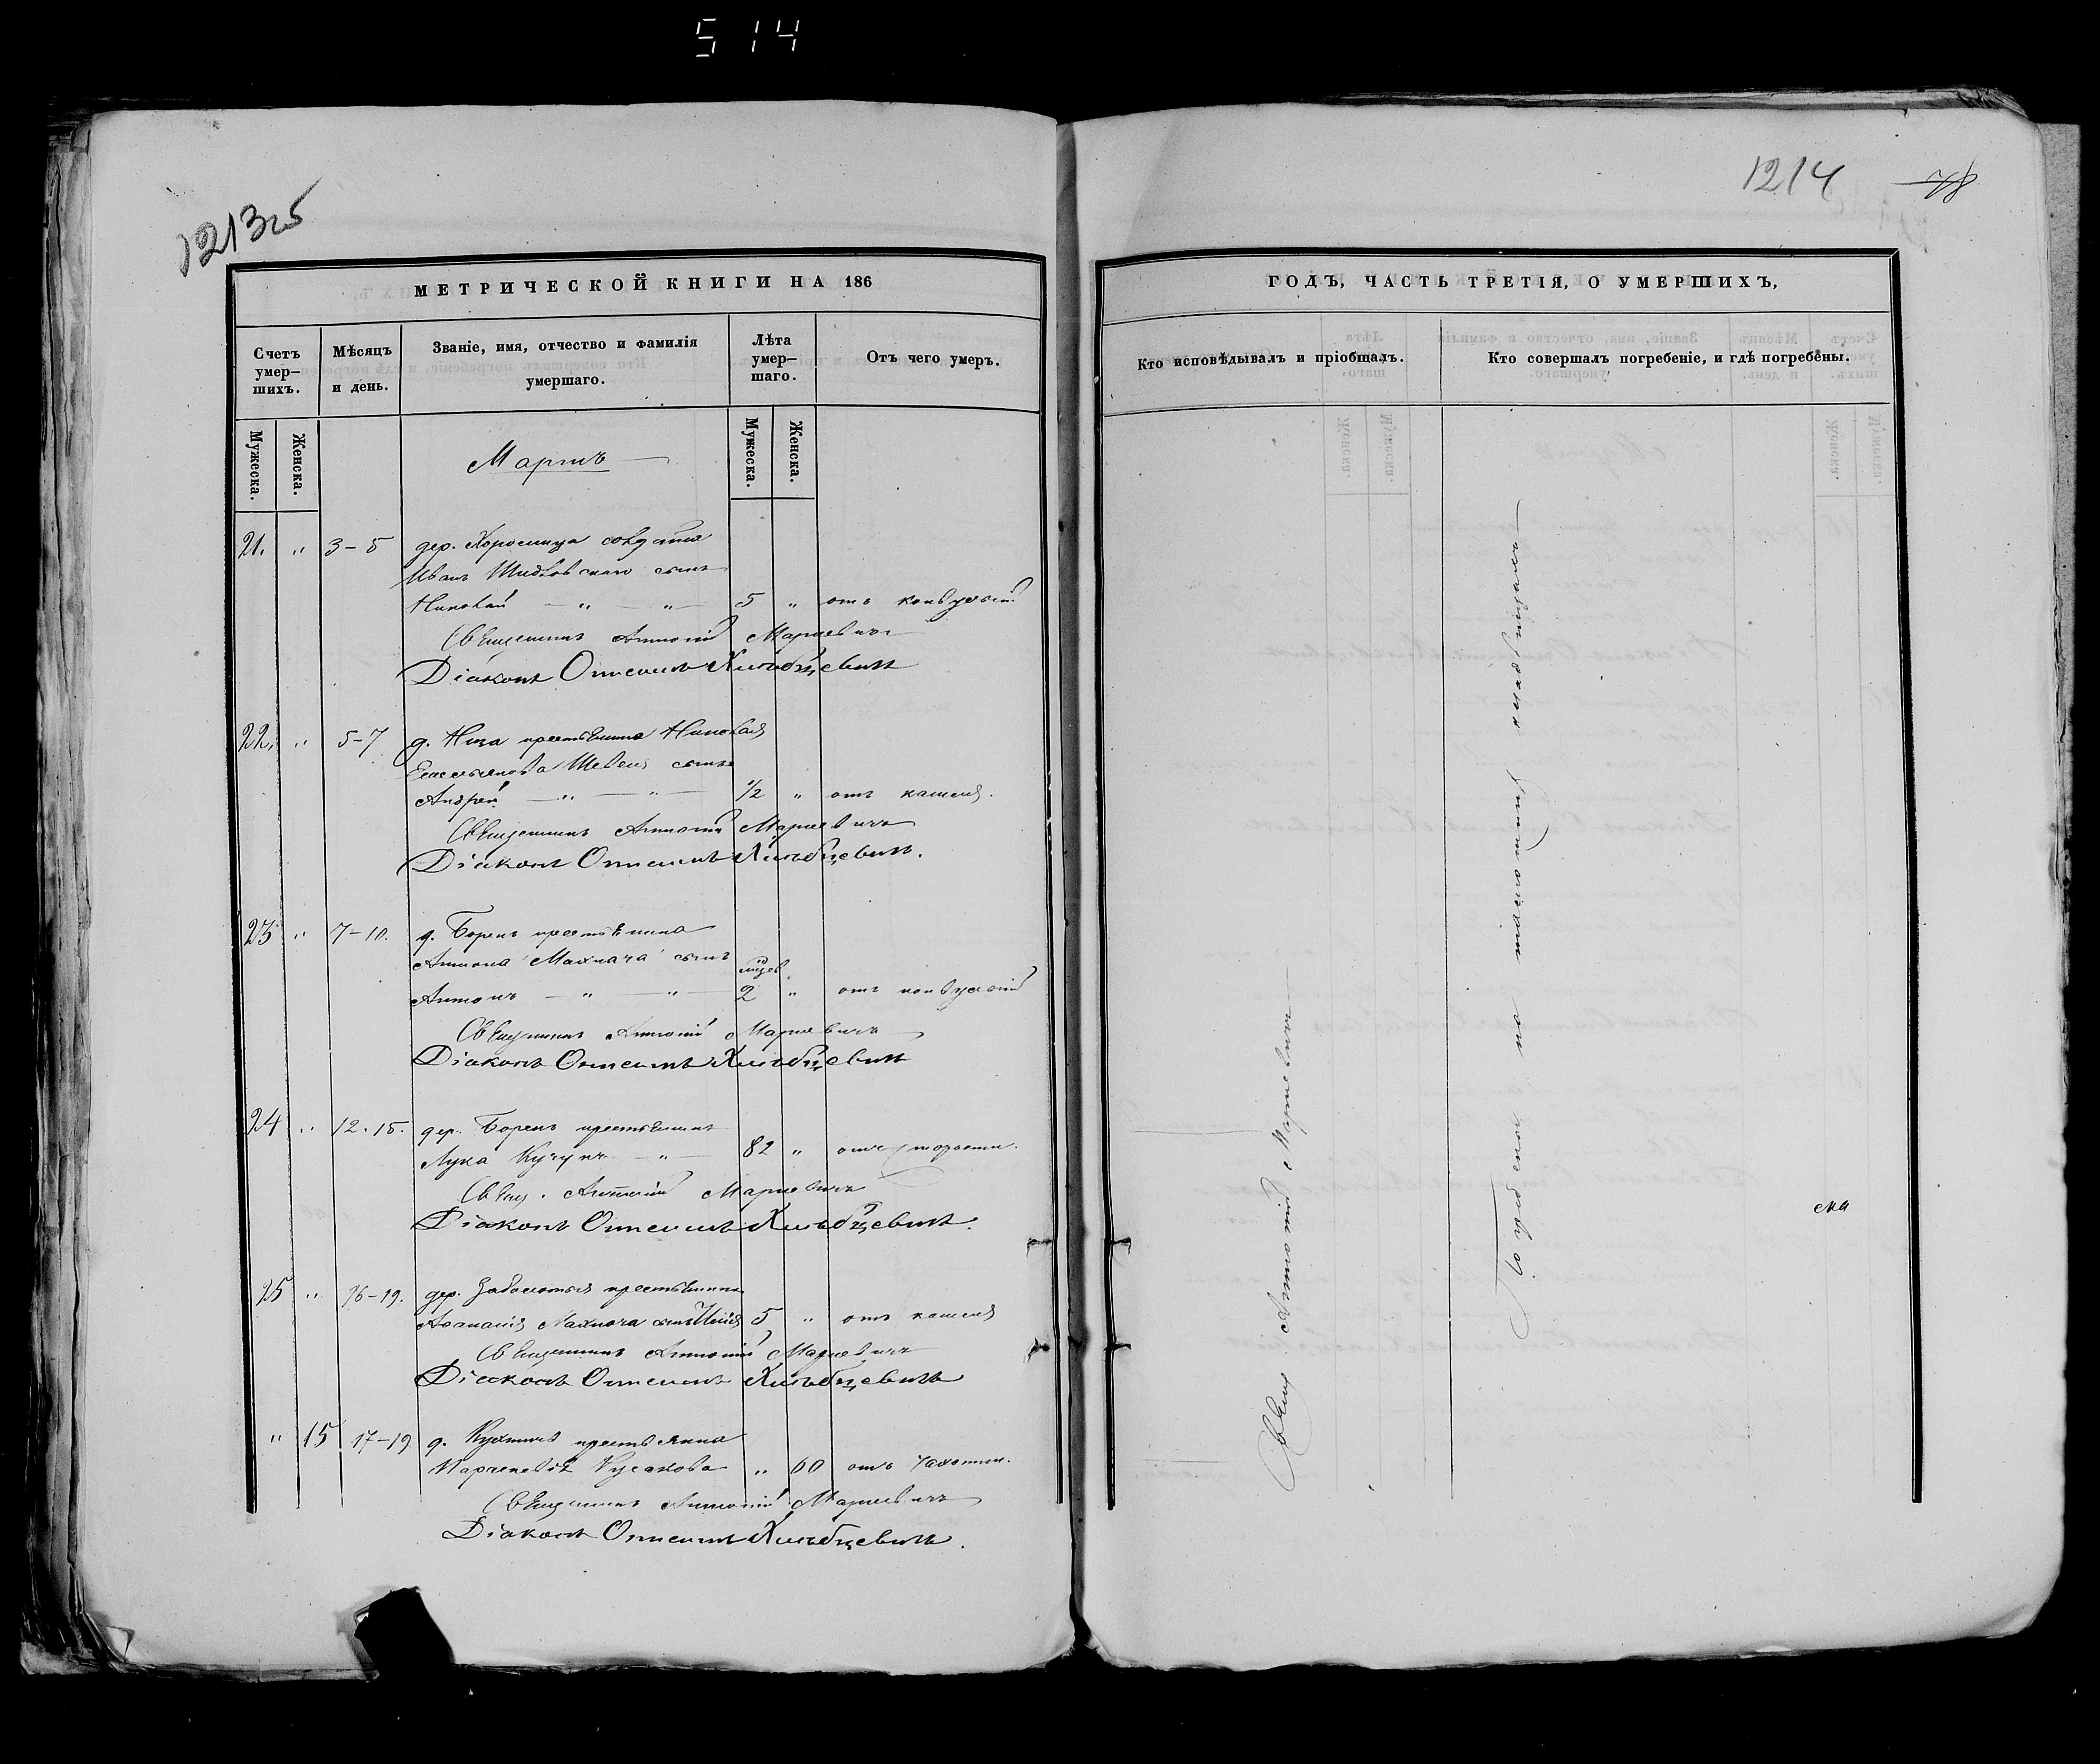 514
1213об
1214
МЕТРИЧЕСКОЙ КНИГИ НА 186
Счетъ умер-шихъ.
Мѣсяцъ и день.
Званіе, имя, отчество и фамилія умершаго.
Лѣта умер-шаго.
Отъ чего умеръ.
Мужеска.
Женска.
Мужеска.
Женска.
Мартъ
21. " 3-5 дер. солдата
Ивана сынъ
Николай — " — " — 5 " отъ конвульсій
Священникъ Антоній Марцевичъ
Діаконъ Онисимъ Хлѣбцевичъ
22. " 5-7 д. крестьянина Николая
Емельянова Шевеля сынъ
Андрей — " — " — 1/2 " отъ кашля.
Священникъ Антоній Марцевичъ
Діаконъ Онисимъ Хлѣбцевичъ.
23 " 7-10. д. Борекъ крестьянина
Антона Махнача сынъ
Антонъ — " — " — 2 " отъ конвульсій
Священникъ Антоній Марцевичъ
Діаконъ Онисимъ Хлѣбцевичъ
24 " 12.15. дер. Борекъ крестьянинъ
Лука — " — 82 " отъ старости.
Свящ. Антоній Марцевичъ
Діаконъ Онисимъ Хлѣбцевичъ.
25 " 16-19. дер. Заболотья крестьянина
Аѳанасія Махнача сынъ 5 " отъ кашля
Священникъ Антоній Марцевичъ
Діаконъ Онисимъ Хлѣбцевичъ
" 15 17-19 д. крестьянка
Русакова " 60 отъ чахотки.
Священникъ Антоній Марцевичъ
Діаконъ Онисимъ Хлѣбцевичъ.
ГОДЪ, ЧАСТЬ ТРЕТІЯ, О УМЕРШИХЪ,
Кто исповѣдывалъ и пріобщалъ.
Кто совершалъ погребеніе, и гдѣ погребены.
Свящ. Антоній Марцевичъ
Погребены на кладбищахъ